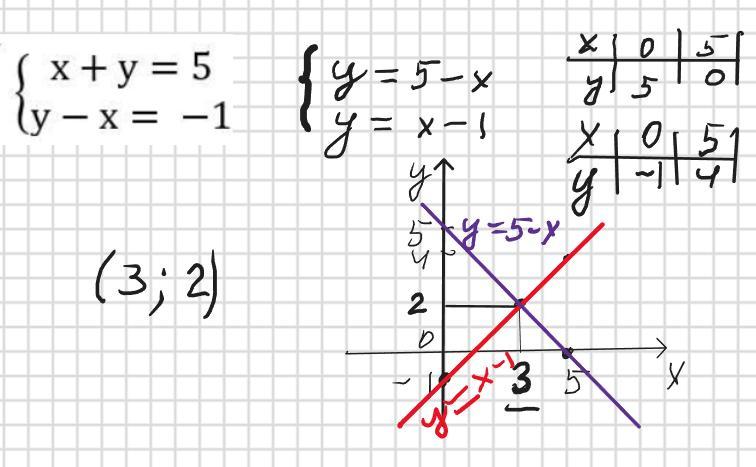 { x + y = 5
y − x = −1
{ y = 5 - x
y = x - 1
x | 0 | 5
y | 5 | 0
x | 0 | 5
y | -1 | 4
(3; 2)
y
5
4
2
0
-1
3
5
x
y = 5 - x
y = x - 1